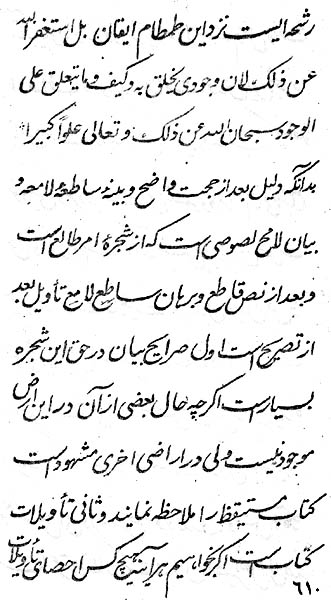 رشحه ایست نزد این طمطام ایقان بل استغفر الله
عن ذلک لان وجودی یخلق به وکیف وما یتعلق علی
الوجود سبحان الله عن ذلک و تعالی علواً کبیرا
بدانکه دلیل بعد از حجت واضح و بینهٔ ساطعهٔ لامعه و
بیان لامح لصوصی است که از شجرهٔ امر طالع است
و بعد از نص قاطع و برهان ساطع لامع تأویل بعد
از تصریح است اول صرایح بیان در حق این شجره
بسیار است اگرچه حال بعضی از آن در این اراضی
موجود نیست ولی در اراضی اخری مشهود است
کتاب مستیقظ را ملاحظه نمایند و ثانی تأویلات
کتاب است اگر بخواهیم هر آینه هیچ کس احصای تأویلات
٦١٠